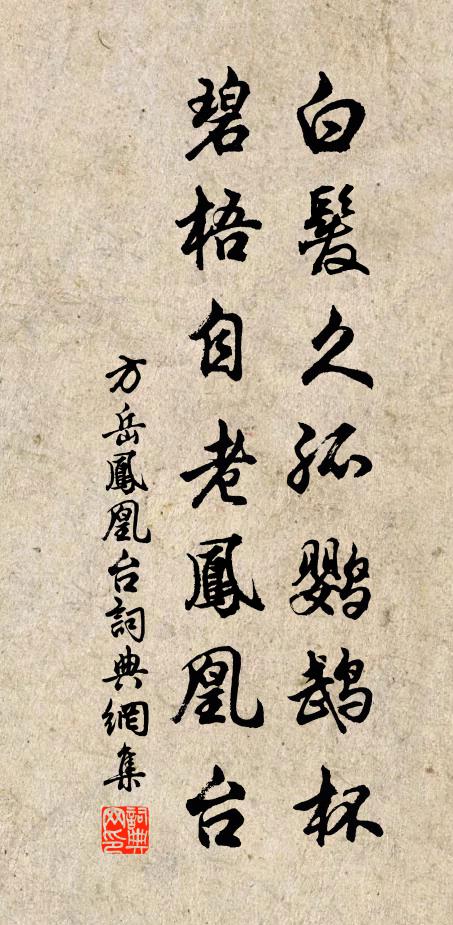 白髮久孤鸚鵡杯
碧梧自老鳳凰台
方岳鳳凰台詞典網集
詞典网印